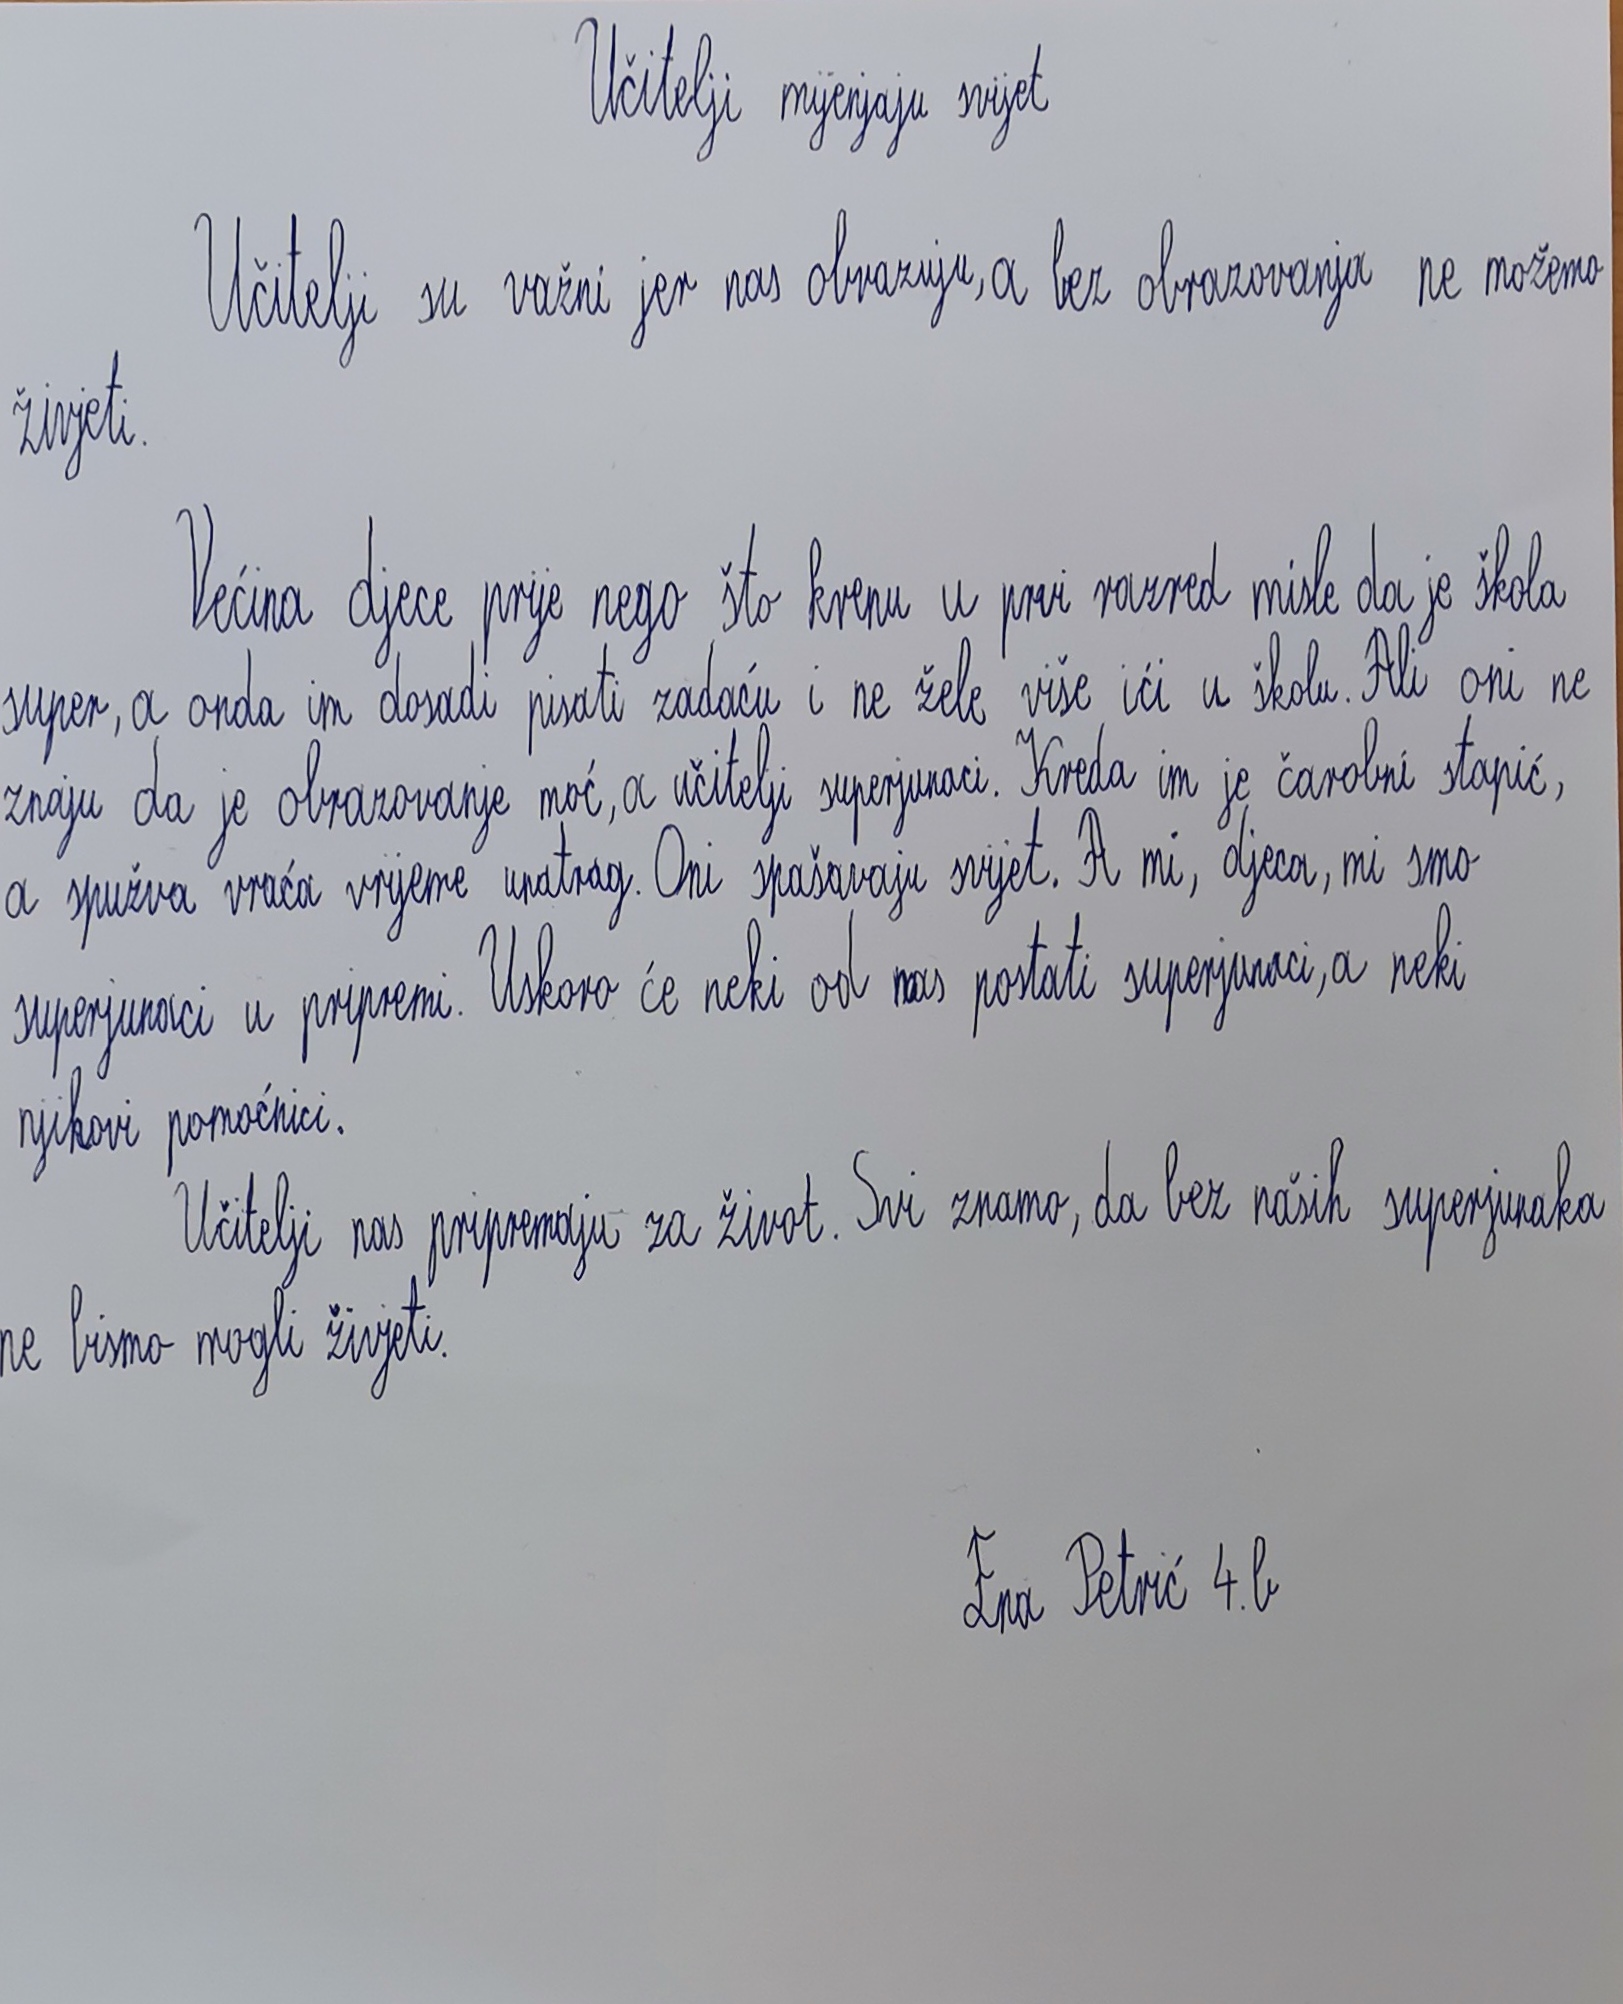 Učitelji mijenjaju svijet
Učitelji su važni jer nas obrazuju, a bez obrazovanja ne možemo
živjeti.
Većina djece prije nego što krenu u prvi razred misle da je škola
super, a onda im dosadi pisati zadaću i ne žele više ići u školu. Ali oni ne
znaju da je obrazovanje moć, a učitelji superjunaci. Kreda im je čarobni stapić,
a spužva vraća vrijeme unatrag. Oni spašavaju svijet. A mi, djeca, mi smo
superjunaci u pripremi. Uskoro će neki od nas postati superjunaci, a neki
njihovi pomoćnici.
Učitelji nas pripremaju za život. Svi znamo, da bez naših superjunaka
ne bismo mogli živjeti.
Ena Petrić 4.b